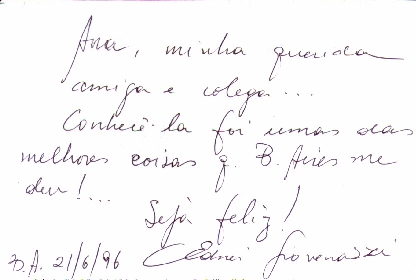 Ana, minha querida
amiga e colega...
Conhecê-la foi umas das
melhores coisas q. B. Aires me
deu!....
Seja feliz!
B.A. 21/6/96